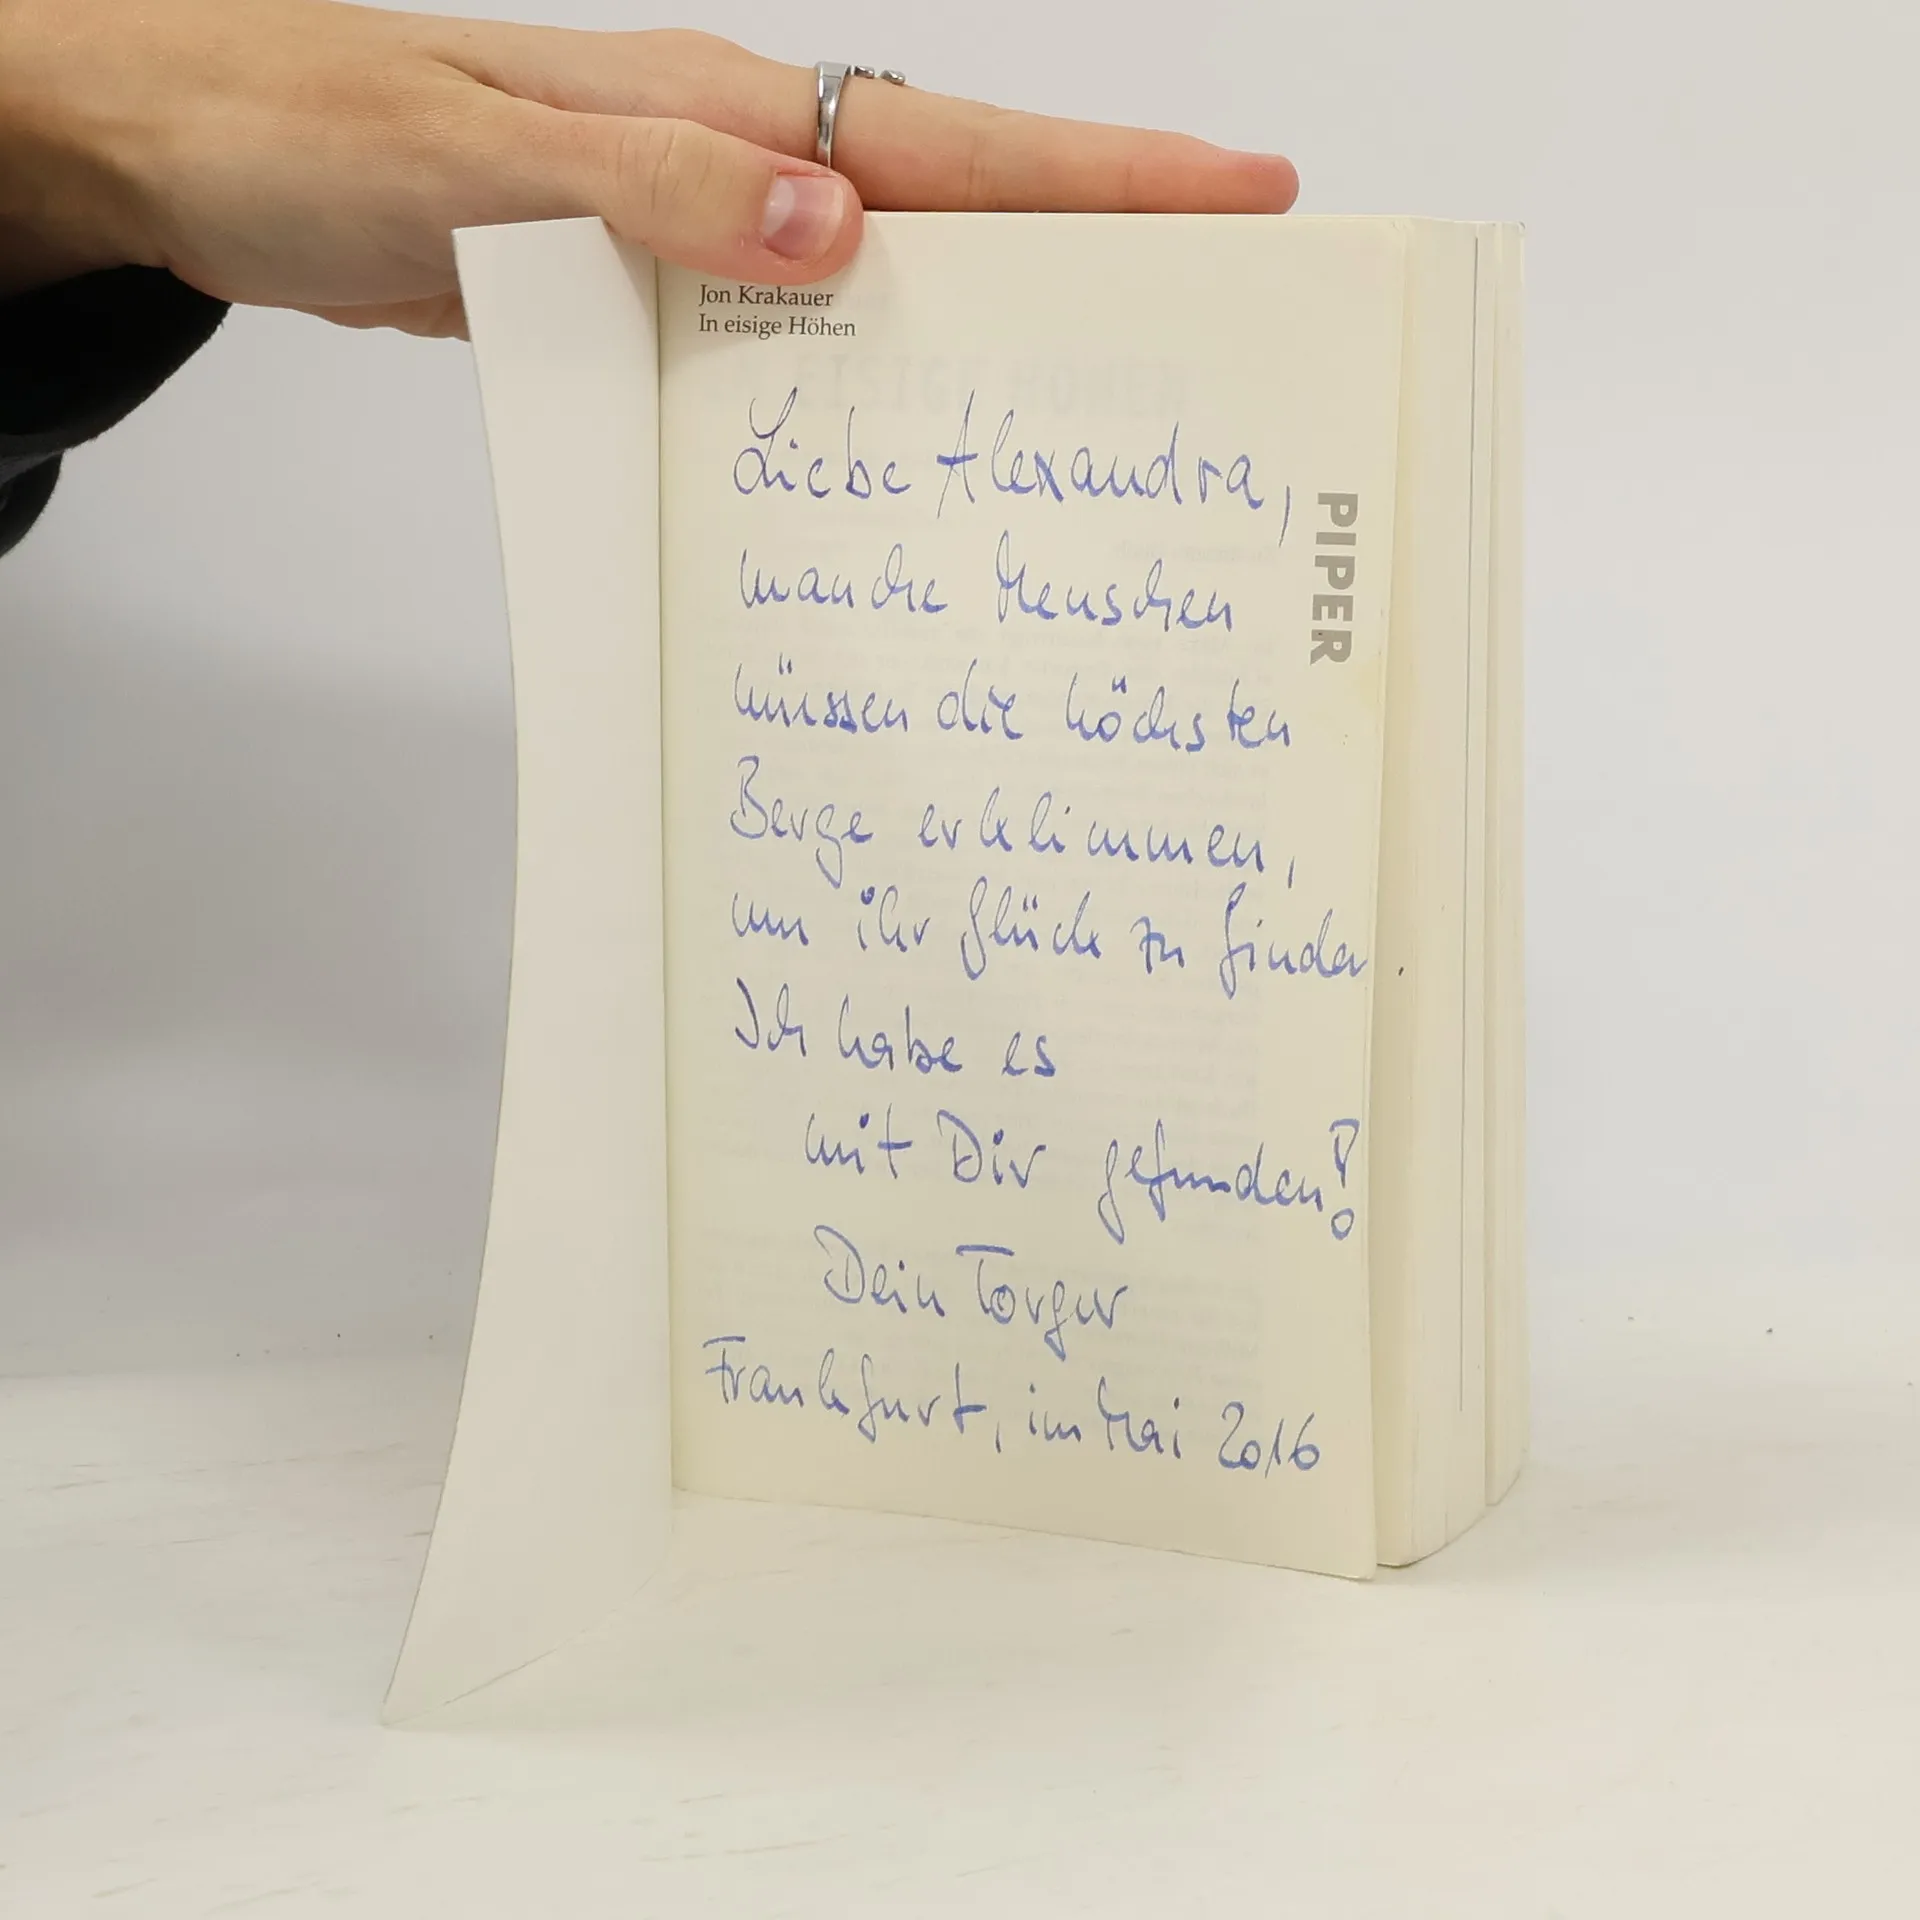 Jon Krakauer
In eisige Höhen
Liebe Alexandra,
manche Menschen
müssen die höchsten
Berge erklimmen,
um ihr Glück zu finden
Ich habe es
mit Dir gefunden!
Dein Torger
Frankfurt, im Mai 2016
PIPER